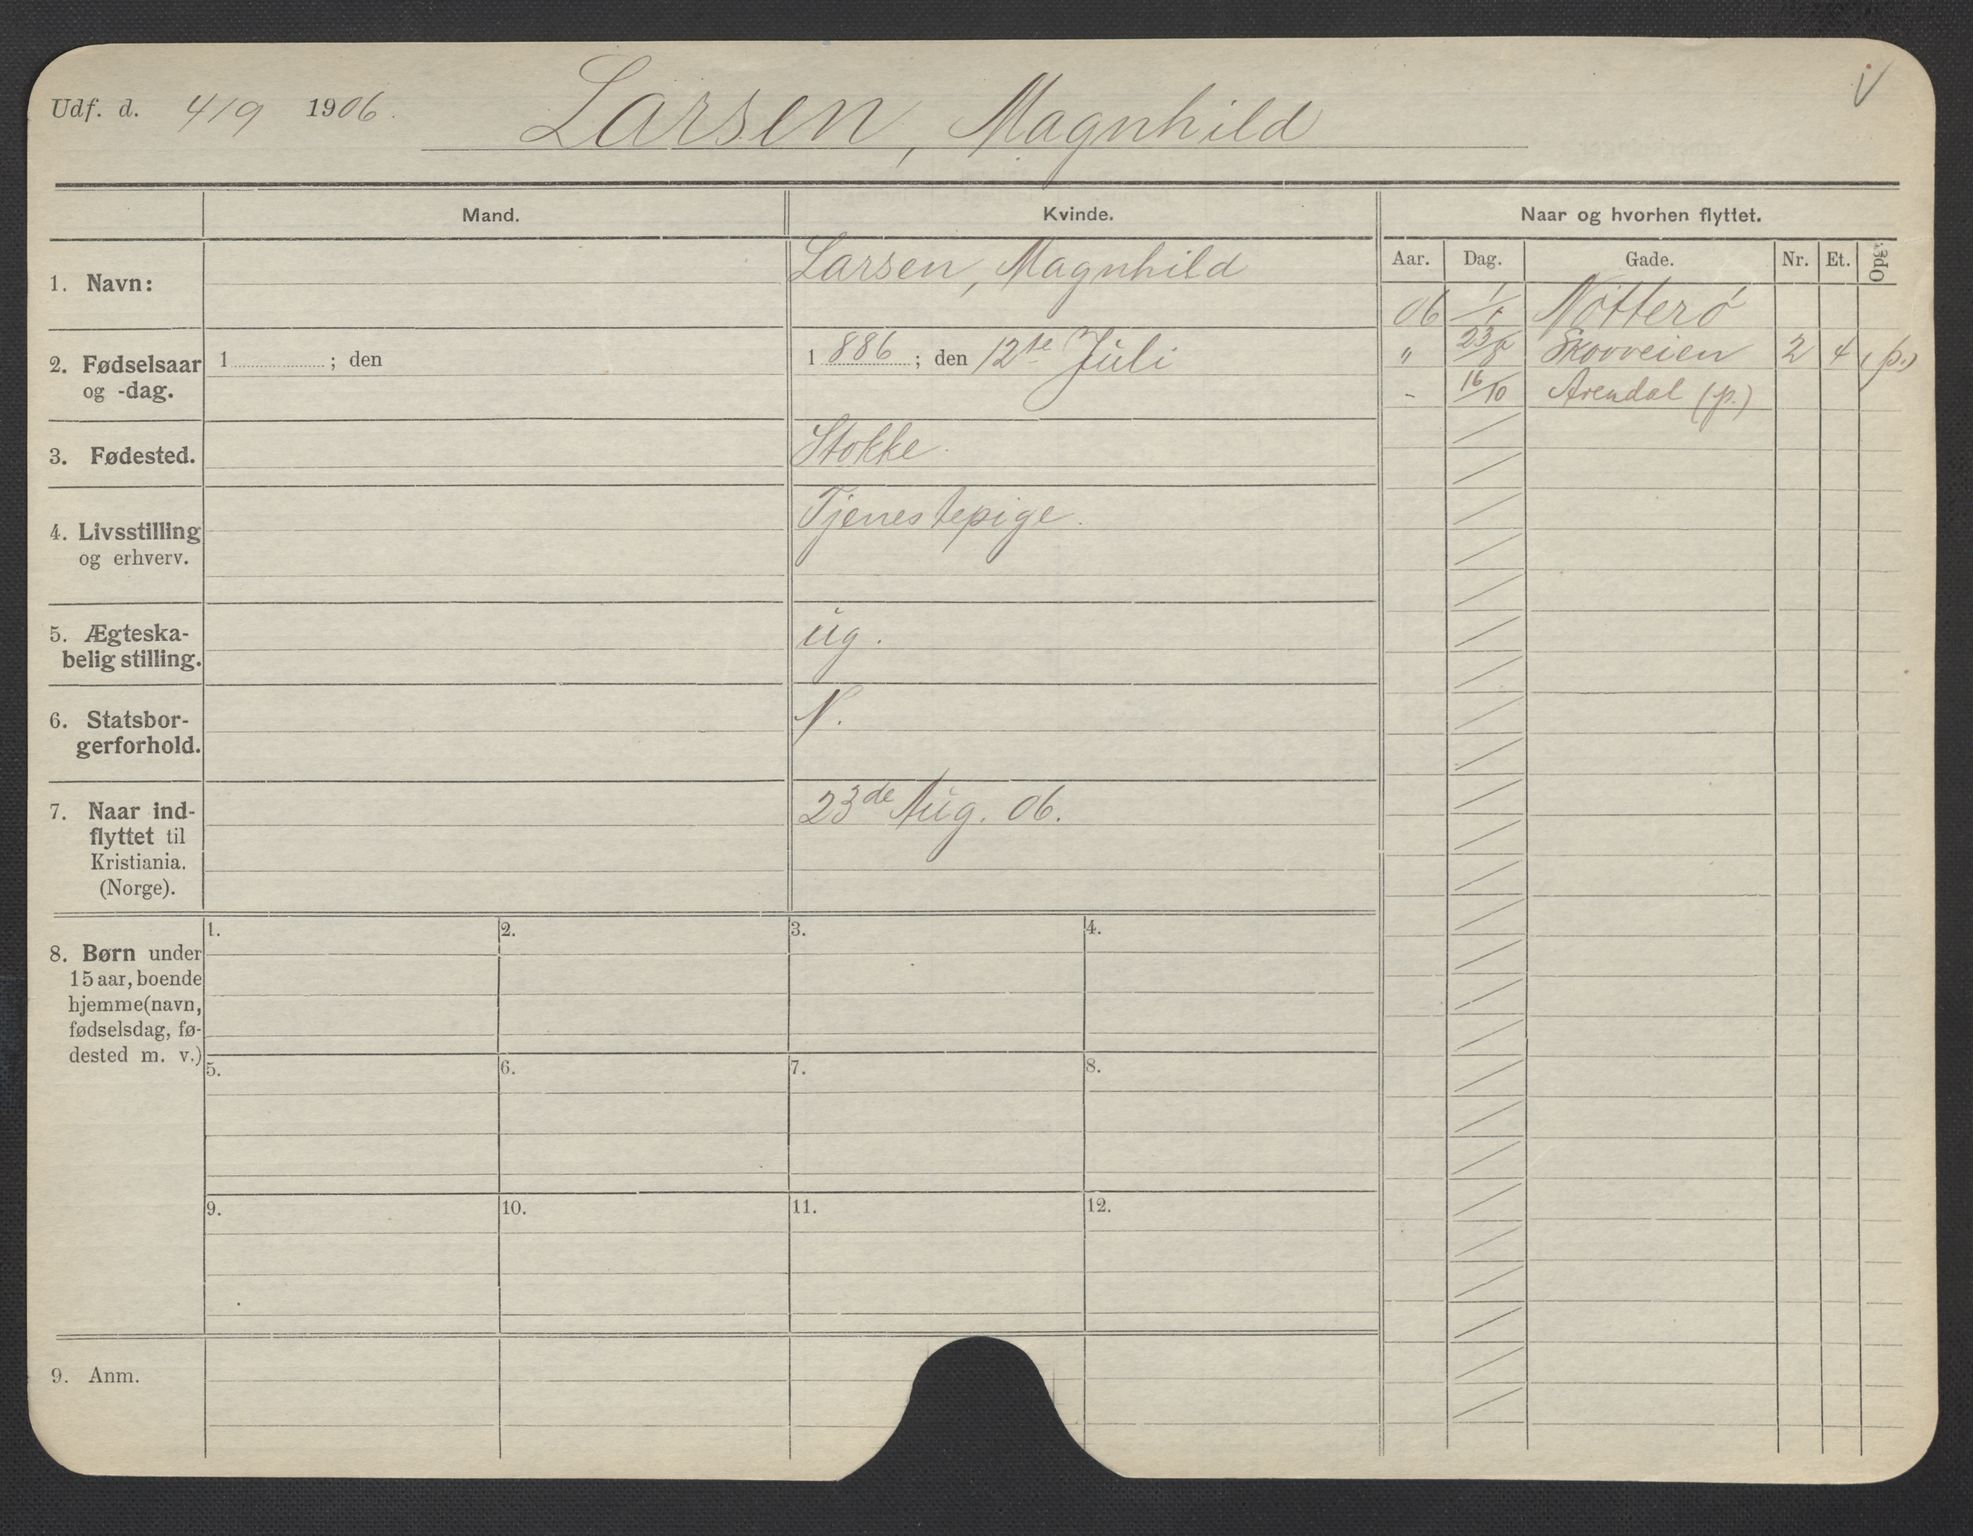 Udf. d. 4/9 1906.
Larsen, Magnhild
Mand.
Kvinde.
Naar og hvorhen flyttet.
Aar. Dag. Gade. Nr. Et. Opg.
1. Navn:
Larsen, Magnhild
06 1/1 Nötterö
2. Fødselsaar
og -dag.
1 ; den
1 886 ; den 12te Juli
" 23/8 Skovveien 2 4 (p.)
- 16/10 Arendal (p.)
3. Fødested.
Stokke
4. Livsstilling
og erhverv.
Tjenestepige.
5. Ægteska-
belig stilling.
ug.
6. Statsbor-
gerforhold.
N.
7. Naar ind-
flyttet til
Kristiania.
(Norge).
23de Aug. 06.
8. Børn under
15 aar, boende
hjemme (navn,
fødselsdag, fø-
dested m. v.)
1. 2. 3. 4.
5. 6. 7. 8.
9. 10. 11. 12.
9. Anm.